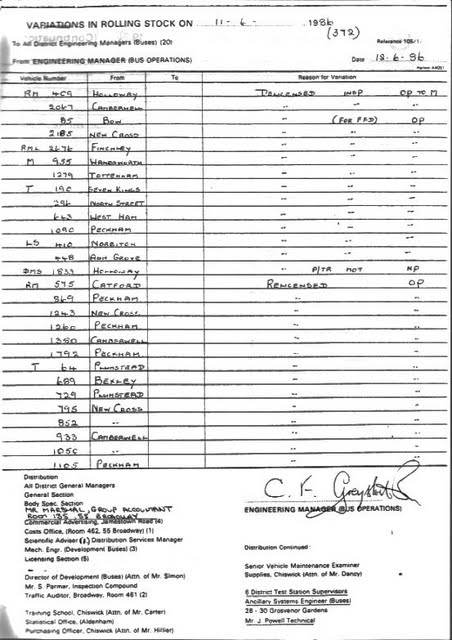 VARIATIONS IN ROLLING STOCK ON 11-6- 1986
(372)
To All District Engineering Managers (Buses) (20)
From ENGINEERING MANAGER (BUS OPERATIONS) Date 12-6-86
Vehicle Number From To Reason for Variation
RM 409 HOLLOWAY DELICENSED INSP OP TO M
2067 CAMBERWELL " " "
85 BOW " (FOR FFD) OP
2185 NEW CROSS " " "
RML 2676 FINCHLEY " " "
M 955 WANDSWORTH " " "
1279 TOTTENHAM " " "
T 190 SEVEN KINGS " " "
296 NORTH STREET " " "
643 WEST HAM " " "
1090 PECKHAM " " "
LS 410 NORBITON " " "
448 ASH GROVE " " "
DMS 1833 HOLLOWAY " P/TR MOT NP
RM 575 CATFORD RELICENSED OP
869 PECKHAM " "
1243 NEW CROSS " "
1260 PECKHAM " "
1380 CAMBERWELL " "
1792 PECKHAM " "
T 64 PLUMSTEAD " "
689 BEXLEY " "
729 PLUMSTEAD " "
795 NEW CROSS " "
852 " " "
933 CAMBERWELL " "
1056 " " "
1105 PECKHAM " "
Distribution
All District General Managers
General Section
Body Spec. Section
MR MARSHAL, GROUP ACCOUNTANT
ROOM 135, 55 BROADWAY
Commercial Advertising, Jamestown Road (4)
Costs Office, (Room 462, 55 Broadway) (1)
Scientific Adviser Distribution Services Manager
Mech. Engr. (Development Buses) (3)
Licensing Section (5)
Director of Development (Buses) (Attn. of Mr. Simon)
Mr. S. Parmar, Inspection Compound
Traffic Auditor, Broadway, Room 461 (2)
Training School, Chiswick (Attn. of Mr. Carter)
Statistical Office, (Aldenham)
Purchasing Officer, Chiswick (Attn. of Mr. Hillier)
ENGINEERING MANAGER (BUS OPERATIONS)
Distribution Continued:
Senior Vehicle Maintenance Examiner
Supplies, Chiswick (Attn. of Mr. Dancy)
6 District Test Station Supervisors
Ancillary Systems Engineer (Buses)
28 - 30 Grosvenor Gardens
Mr. J. Powell Technical